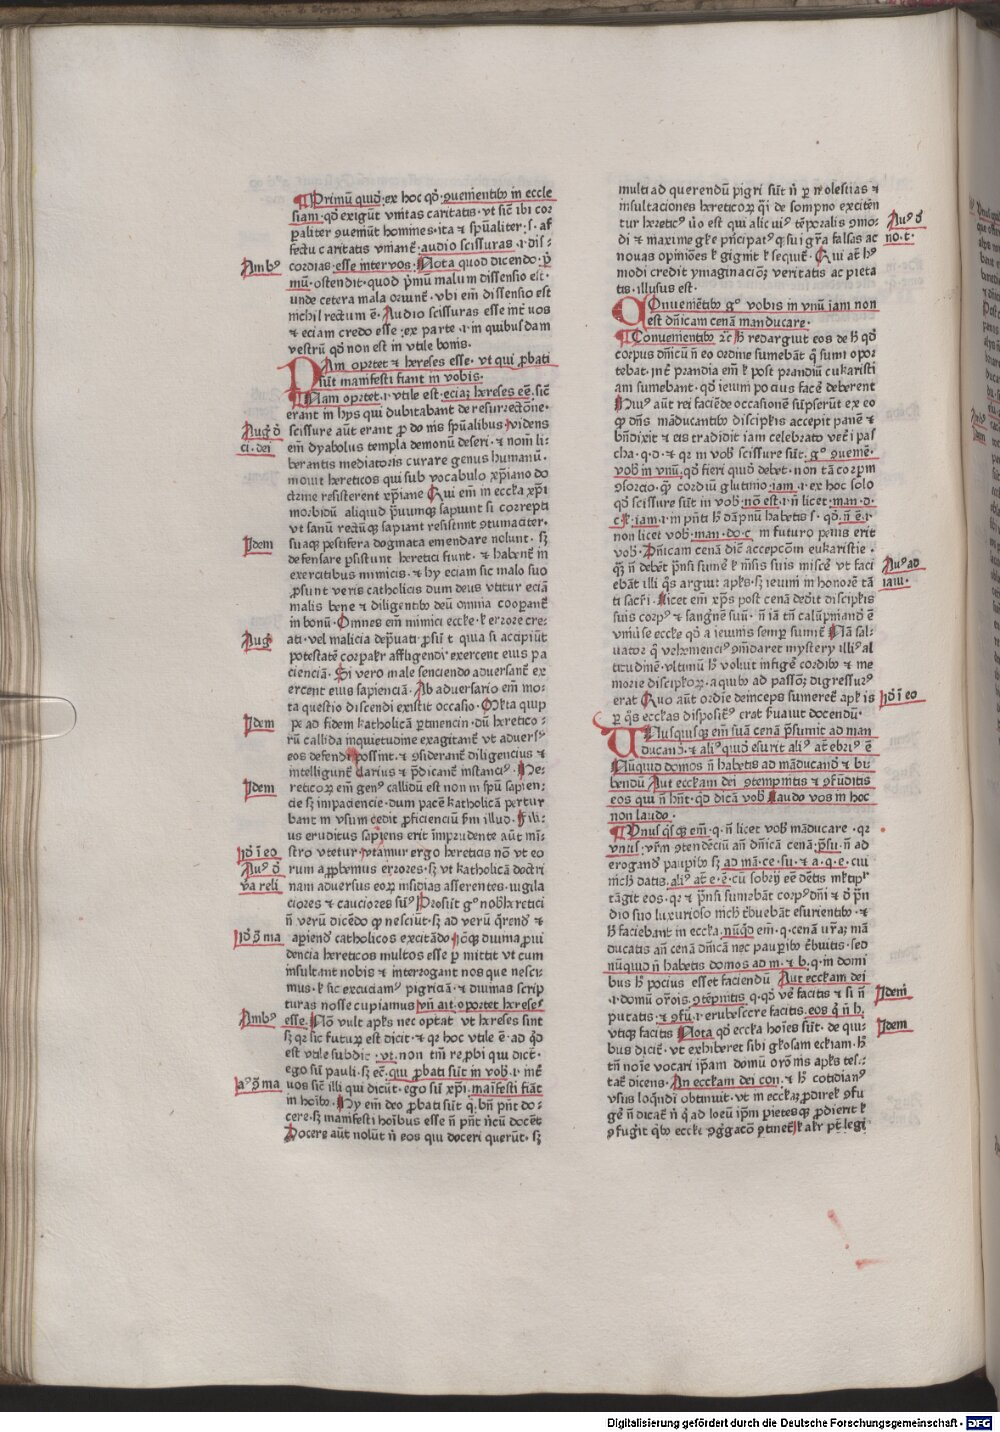 Primū quidē ex hoc qđ ꝯuenientibꝰ in eccle
siam · qđ exigūt vnitas caritatis · vt sic̄ ibi cor
paliter ꝯueniūt homines · ita ⁊ sp̄ualiter · s · af
fectu caritatis vniant̄ · audio scissuras · i · dis⸗
cordias · esse inter vos · Nota quod dicendo · p̄
mū · ostendit · quod p̄mū malum dissensio est ·
unde cetera mala oriunt̄ · vbi em̄ dissensio est
nichil rectum ē · Audio scissuras esse int̄ uos
⁊ eciam credo esse · ex parte · i · in quibusdam
vestrū qđ non est in vtile bonis ·
Nam oportet ⁊ hereses esse · vt qui ꝓbati
sūt manifesti fiant in vobis ·
Nam oportet · i · vtile est · eciaꝫ hereses eē · sic̄
erant in hijs qui dubitabant de resurrectōne ·
scissure aūt erant ꝓ do nis sp̄ualibus · videns
em̄ dyabolus templa demonū deseri · ⁊ nom̄ li⸗
berantis mediatoris currere genus humanū ·
mouit hereticos qui sub vocabulo xp̄iano do
ctrine resisterent xp̄iane · Qui em̄ in ecclīa xp̄i
morbidū aliquid p̄uumqꝫ sapiunt si correpti
vt sanū rectūqꝫ sapiant resistunt ꝯtumaciter ·
suaqꝫ pestifera dogmata emendare nolunt · sꝫ
defensare ꝑsistunt heretici fiunt · ⁊ habent̄ in
exercitibus inimicis · ⁊ hy eciam sic malo suo
ꝓsunt veris catholicis dum deus vtitur eciā
malis bene ⁊ diligentibꝰ deū omnia coopant̄
in bonū · Omnes em̄ inimici eccle · ł errore cre⸗
ati · vel malicia dep̄uati ꝓsūt
potestatē corpalr̄ affligendi exercent eius pa
cienciā · Si vero male senciendo aduersant̄ ex
ercent eius sapienciā · Ab aduersario em̄ mo⸗
ta questio discendi existit occasio ·
pe ad fidem katholicā ꝑtinencia · dū heretico⸗
rū callida inquietudine exagitant̄ vt aduersꝰ
eos defendi possint · ⁊ ꝯsiderant̄ diligencius ⁊
intelligunt̄ clarius ⁊ p̄dicant̄ instanciꝰ · He⸗
reticoꝝ em̄ genꝰ callidū est non in spū sapien⸗
cie sꝫ impaciencie · dum pacē katholicā pertur
bant in vsum cedit ꝓficienciū fm illud · Fili⸗
us eruditus sapiens erit īmprudente aūt min̄
stro vtetur · vtamur ergo hereticis nō vt eo
rum aꝓbemus errores · sꝫ vt katholicā doctri
nam aduersus eoꝝ insidias asserentes · uigila
ciores ⁊ cauciores simꝰ · Prosūt gͦ nobꝭ heretici
n̄ verū dicēdo qꝫ nesciūt · sꝫ ad verū q̄rendꝰ ⁊
apiendꝰ catholicos excitādo · diuina ꝓui
dencia hereticos multos esse ꝑmittit vt cum
insultant nobis ⁊ interogant nos que nesci⸗
mus · ł sic excuciamꝰ pigriciā · ⁊ diuinas scrip
turas nosse cupiamus · oportet hereseˢ
esse · Nō vult apłs nec optat vt hereses sint
sꝫ qꝛ sic futuꝝ est dicit · ⁊ qꝛ hoc vtile ē · ad qđ
est vtile subdit · vt · non tm̄ reꝓbi qui dicēt ·
ego sū pauli · sꝫ eē · qui ꝓbati sūt in vobꝭ · i · int̄
uos sic̄ illi qui dicūt · ego sū xp̄i · māifesti fiāt
in hoībꝰ · Hy em̄ deo ꝓbati sūt q · bn̄ pn̄t do⸗
cere · sꝫ manifesti hoībus esse n̄ pn̄t n̄ cū docēt
Docere aūt nolūt n̄ eos qui doceri querūt · sꝫ
Ambꝰ
Augꝰ d̄
ci · dei
Idem
Augꝰ
Idem
Idem
Id̄ ī eo
Auꝰ d̄
va reli
Id̄ ꝗ ma
Ambꝰ
aꝰ ꝗ ma
multi ad querendū pigri sūt n̄ ꝑ molestias ⁊
insultaciones hereticoꝝ q̄i de sompno exciten
tur hereticꝰ ūo est qui alicuiꝰ tēporalis ꝯmo⸗
di ⁊ maxime głe pn̄cipatꝰqꝫ sui gr̄a falsas ac
nouas opiniōes ł gignit ł sequit̄ · Qui at̄ hꝰ
modi credit ymaginacioꝫ veritatis ac pieta
tis · illusus est ·
Conuenientibꝰ gͦ vobis in vnū iam non
est dn̄icam cenā manducare ·
Conuenientibꝰ ⁊c̄ hic redarguit eos de hͦ qđ
corpus dn̄icū n̄ eo ordine sumebāt qͦ sumi opor
tebat · int̄ prandia em̄ ł post prandiū eukaristi
am sumebant · qđ ieiuni pocius facere deberent
Huiꝰ aūt rei faciēde occasionē sūpserūt ex eo
qꝫ dn̄s māducantibꝰ discipłis accepit panē ⁊
bn̄dixit ⁊ eis tradidit iam celebrato vet̄i pas
cha · q · d · ⁊ qꝛ in vobꝭ scissure sūt · gͦ ꝯueniē ·
vobꝭ in vnū · qđ fieri quidē debet · non tā corpm
ꝯsorcio · qͣ cordiū glutino · iam · i · ex hoc solo
qđ scissure sūt in vobꝭ · nō est · i · n̄ licet · man · d ·
c · ł · iam · i · in pn̄ti · qđ · n̄ ē · i ·
non licet vobꝭ · man · do · c · in futuro penis erit
vobꝭ · Dn̄icam cenā dic̄ accepcōm eukaristie ·
qͣ n̄ debēt pn̄si sumē ł mēsis suis miscē vt faci
ebāt illi qͦs arguit apłs · sꝫ ieiuni in honorē tā
ti sacri · Licet em̄ xp̄s post cenā dedit discipłis
suis corpꝰ ⁊ sangnē suū · n̄ iā tn̄ calūpniandū ē
vniuerse eccle qđ a ieiunis semper sumit̄ · Nā sal⸗
uator qͦ vehemenciꝰ ꝯmdaret mystery illiꝰ al
titudinē · vltimū hͦ voluit infigē cordibꝰ ⁊ me
morie discipłoꝝ · a quibꝰ ad passōꝫ digressurꝰ
erat · Quo aūt ordie deinceps sumeret̄ apłis
ꝑ qͦs eccłas dispositꝰ erat ẜuauit docendū ·
Unusquisqꝫ em̄ suā cenā p̄sumit ad man
ducandꝰ · ⁊ aliꝰ quidē esurit aliꝰ at̄ ebriꝰ ē
Nūquid domos n̄ habetis ad māducandꝰ ⁊ bi⸗
bendū · Aut eccłam dei ꝯtempnitis ⁊ ꝯfūditis
eos qui n̄ hn̄t · qđ dicā vobꝭ · Laudo vos in hoc
non laudo ·
Vnusqͥsqꝫ em̄ · q · n̄ licet vobꝭ māducare · qꝛ
vnusꝰ · vrm̄ ꝯtendēciū an̄ dn̄icā cenā · p̄su · n̄ ad
erogandꝰ paupibꝰ sꝫ ad mā · ce · su · ⁊ a · q · e · cui
nich̄ datis · aliꝰ at̄ · e · ē · cū sobrij eē dētis
tāgit eos · qꝛ ⁊ pn̄si sumebāt corpꝰ dn̄i ⁊ d̄ pn̄
dio suo luxurioso nich̄ t̄buebāt esurientibꝰ · ⁊
hͦ faciebant in eccła · nūqͥd em̄ · q · cenā urāꝫ mā
ducatis an̄ cenā dn̄icā nec paupibꝰ t̄buitis · sed
nūquid n̄ habetis domos ad m · ⁊ b · q · in domi
bus hͦ pocius esset faciendū · Aut eccłam dei
· i · domū or̄ois · ꝯtēpnitis · q · qđ verē facitis ⁊ si n̄
putatis · ⁊ ꝯfū · i · erubescere facitis · eos qͥ n̄ hn̄ ·
vtiqꝫ facitis · Nota qđ eccła hoīes sūt · de qui⸗
bus dicit̄ · vt exhiberet sibi głosam eccłam · hͦ
tn̄ nōie vocari ip̄am domū oro̅nis apłs tes⸗
tat̄ dicens · An eccłam dei con · ⁊ hͦ cotidianꝰ
vsus loqͤndi obtinuit · vt in eccłaꝫ ꝓdire ł ꝯfu
gē n̄ dicat̄ n̄ qͥ ad locū ip̄m pietesqꝫ ꝓdierit ł
ꝯfugit qͥbꝰ eccłe ꝯgͣgacō ꝯtinet̄ · ł alr̄ pt̄ legi
Auꝰ d̄
no · t ·
Auꝰ ad
ianu ·
Id̄ ī eo
Idem
Idem
Digitalisierung gefördert durch die Deutsche Forschungsgemeinschaft - DFG